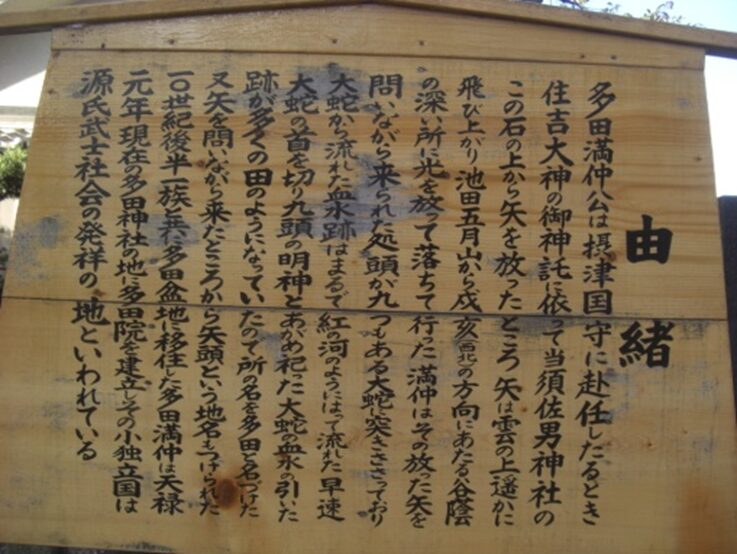 由緒
多田満仲公は摂津国守に赴任したるとき
住吉大神の御神託に依って当須佐男神社の
この石の上から矢を放ったところ 矢は雲の上遥かに
飛び上がり 池田五月山から戌亥(西北)の方向にあたる谷陰
の深い所に光を放って落ちて行った 満仲はその放った矢を
問いながら来られた処頭が九つもある大蛇に突きささっており
大蛇から流れた血跡はまるで紅の河のようにはって流れた 早速
大蛇の首を切り九頭の明神とあがめ祀た 大蛇の血の引いた
跡が多くの田のようになっていたので所の名を多田と名づけた
又矢を問いながら来たところから矢頭という地名もつけられた
一〇世紀後半一族と共に多田盆地に移住した多田満仲は天禄
元年 現在の多田神社の地に多田院を建立しその小独立国は
源氏武士社会の発祥の 地といわれている